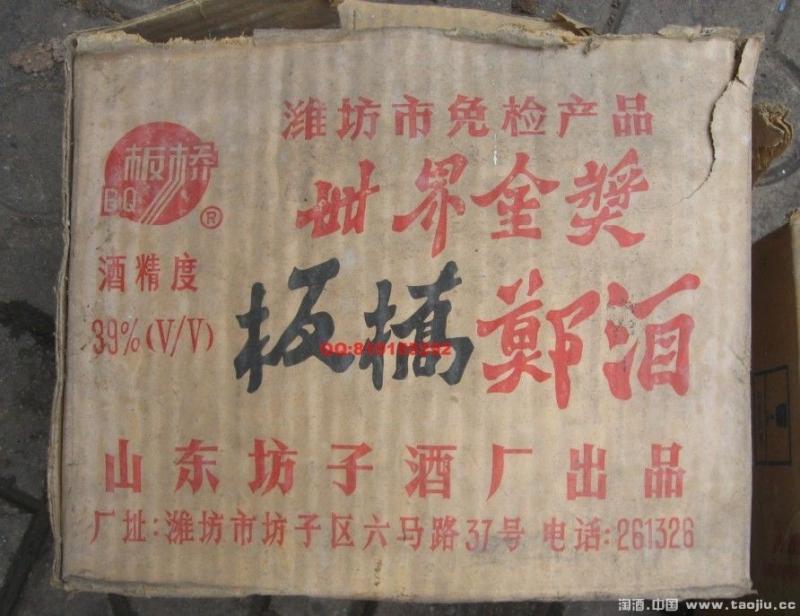 潍坊市免检产品
板桥
BQ
®
世界金奬
酒精度
39%(V/V)
板橋鄭酒
山东坊子酒厂出品
厂址:潍坊市坊子区六马路37号 电话:261326
淘酒.中国 www.taojiu.cc